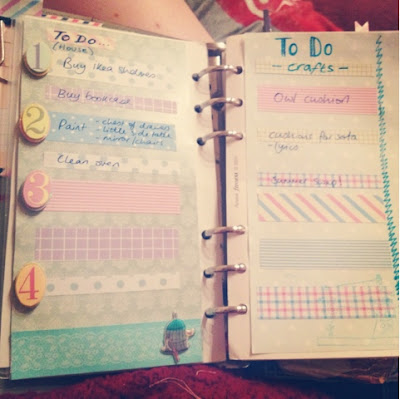 To Do...
(House)
1
Buy Ikea shelves
Buy bookcase
2
Paint - chest of drawers
- little table
- mirror/chairs
Clean oven
3
4
To Do
- crafts -
Owl cushion
cushions for sofa
- lyrics
Summer